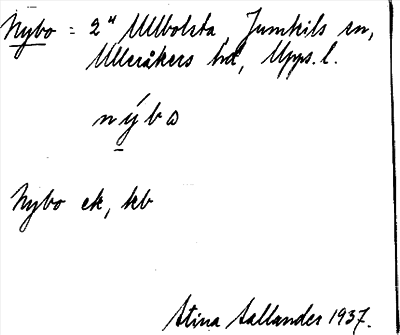 Nybo = 2" Ullbolsta, Jumkils sn,
Ulleråkers hd, Upps. l.
nýbω
Nybo ek, kb
Stina Sallander 1937.